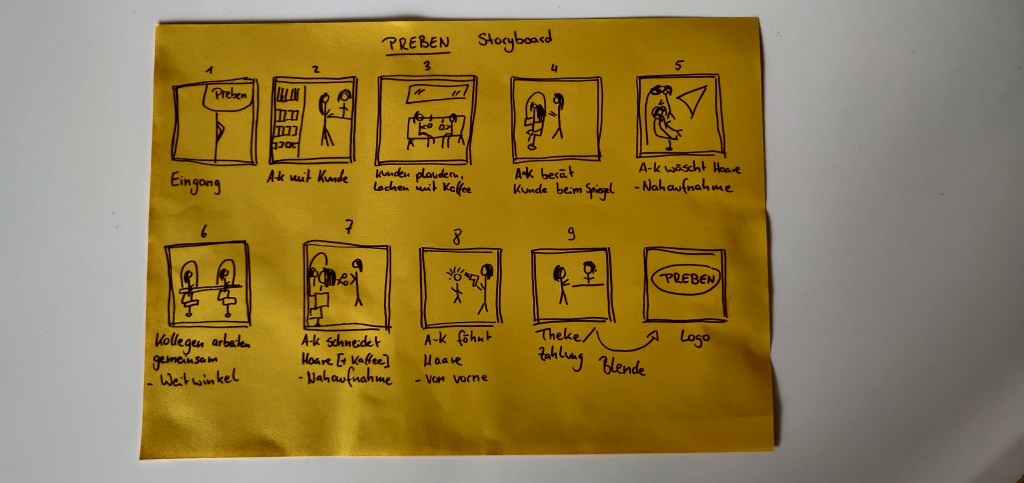 PREBEN Storyboard
1
2
3
4
5
Preben
Eingang
A-K mit Kunde
Kunden plaudern,
lachen mit Kaffee
A-K berät
Kunde beim Spiegel
A-K wäscht Haare
- Nahaufnahme
6
7
8
9
PREBEN
Kollegen arbeiten
gemeinsam
- Weitwinkel
A-K schneidet
Haare [+ Kaffee]
- Nahaufnahme
A-K föhnt
Haare
- Von vorne
Theke/
Zahlung
Blende
Logo